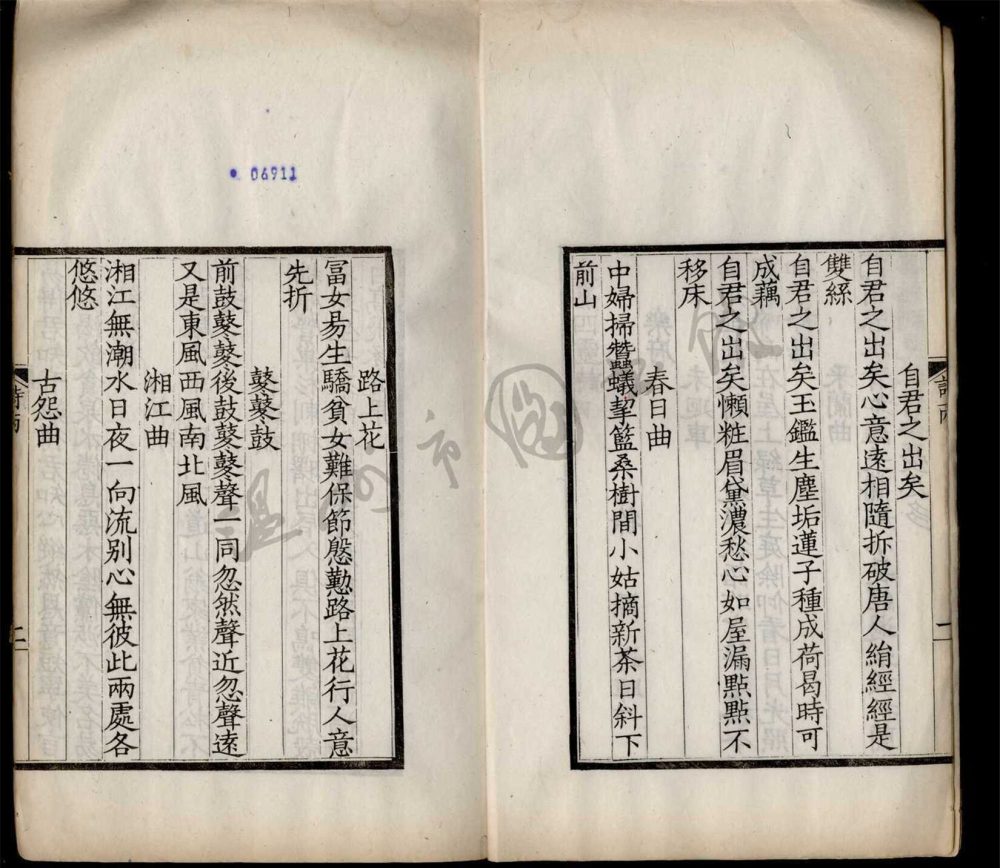 自君之出矣
自君之出矣心意遠相隨拆破唐人絹經經是
雙絲
自君之出矣玉鑑生塵垢蓮子種成荷曷時可
成藕
自君之出矣懶粧眉黛濃愁心如屋漏點點不
移床
春日曲
中婦掃蠶蟻挈籃桑樹間小姑摘新茶日斜下
前山
路上花
冨女昜生驕貧女難保節慇懃路上花行人意
先折
鼕鼕鼓
前鼓鼕鼕後鼓鼕鼕聲一同忽然聲近忽聲遠
又是東風西風南北風
湘江曲
湘江無潮水日夜一向流别心無彼此兩處各
悠悠
古怨曲
二
06911
温州市圖